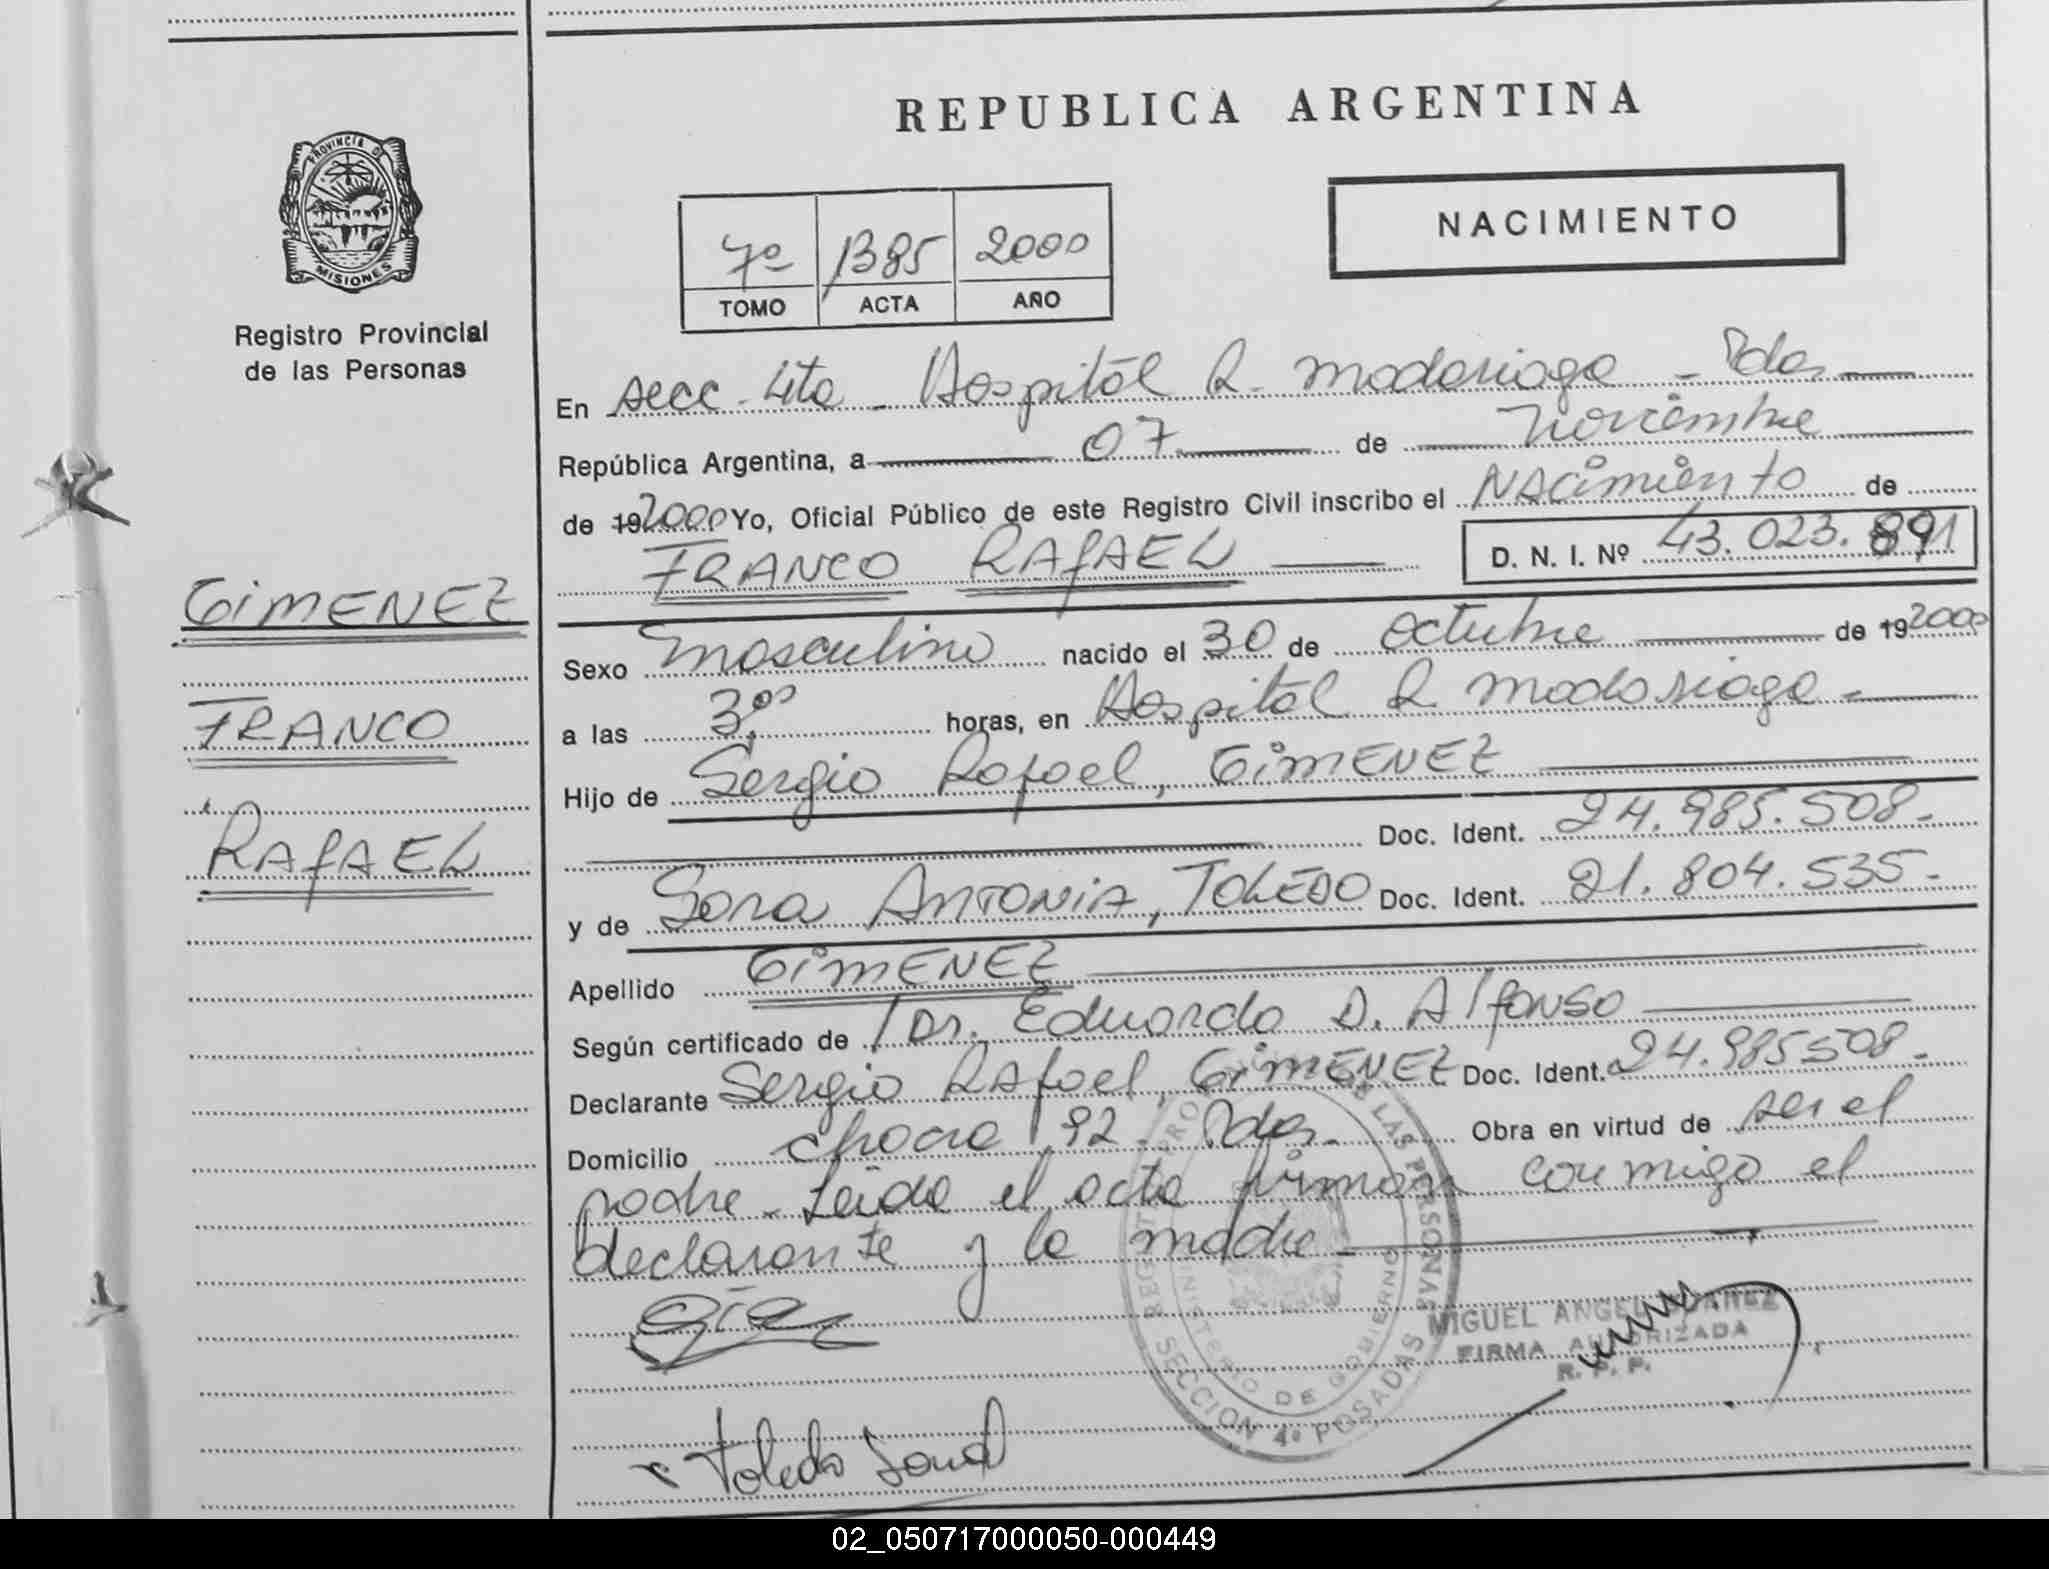 REPUBLICA ARGENTINA
PROVINCIA DE
MISIONES
Registro Provincial
de las Personas
NACIMIENTO
7º 1385 2000
TOMO ACTA AÑO
En secc. 4ta - Hospital R. Madariaga - Pdas
República Argentina, a 07 de noviembre
de 19 2000 Yo, Oficial Público de este Registro Civil inscribo el NACimiento de
FRANCO RAFAEL D. N. I. Nº 43.023.891
GIMENEZ
FRANCO
RAFAEL
Sexo masculino nacido el 30 de octubre de 19 2000
a las 3,00 horas, en Hospital R Madariaga -
Hijo de Sergio Rafael, GIMENEZ
Doc. Ident. 24.985.508.-
y de Sara ANTONIA, TOLEDO Doc. Ident. 21.804.535.-
Apellido GIMENEZ
Según certificado de Dr. Eduardo D. Alfonso
Declarante Sergio Rafael, GIMENEZ Doc. Ident. 24.985508.-
Domicilio chacra 92 - Pdas. Obra en virtud de ser el
padre - Leída el acta firman conmigo el
declarante y la madre -
MINISTERIO DE GOBIERNO
SECCION 4º POSADAS
MIGUEL ANGEL
FIRMA AUTORIZADA
R. P. P.
Toledo Sara
02_050717000050-000449